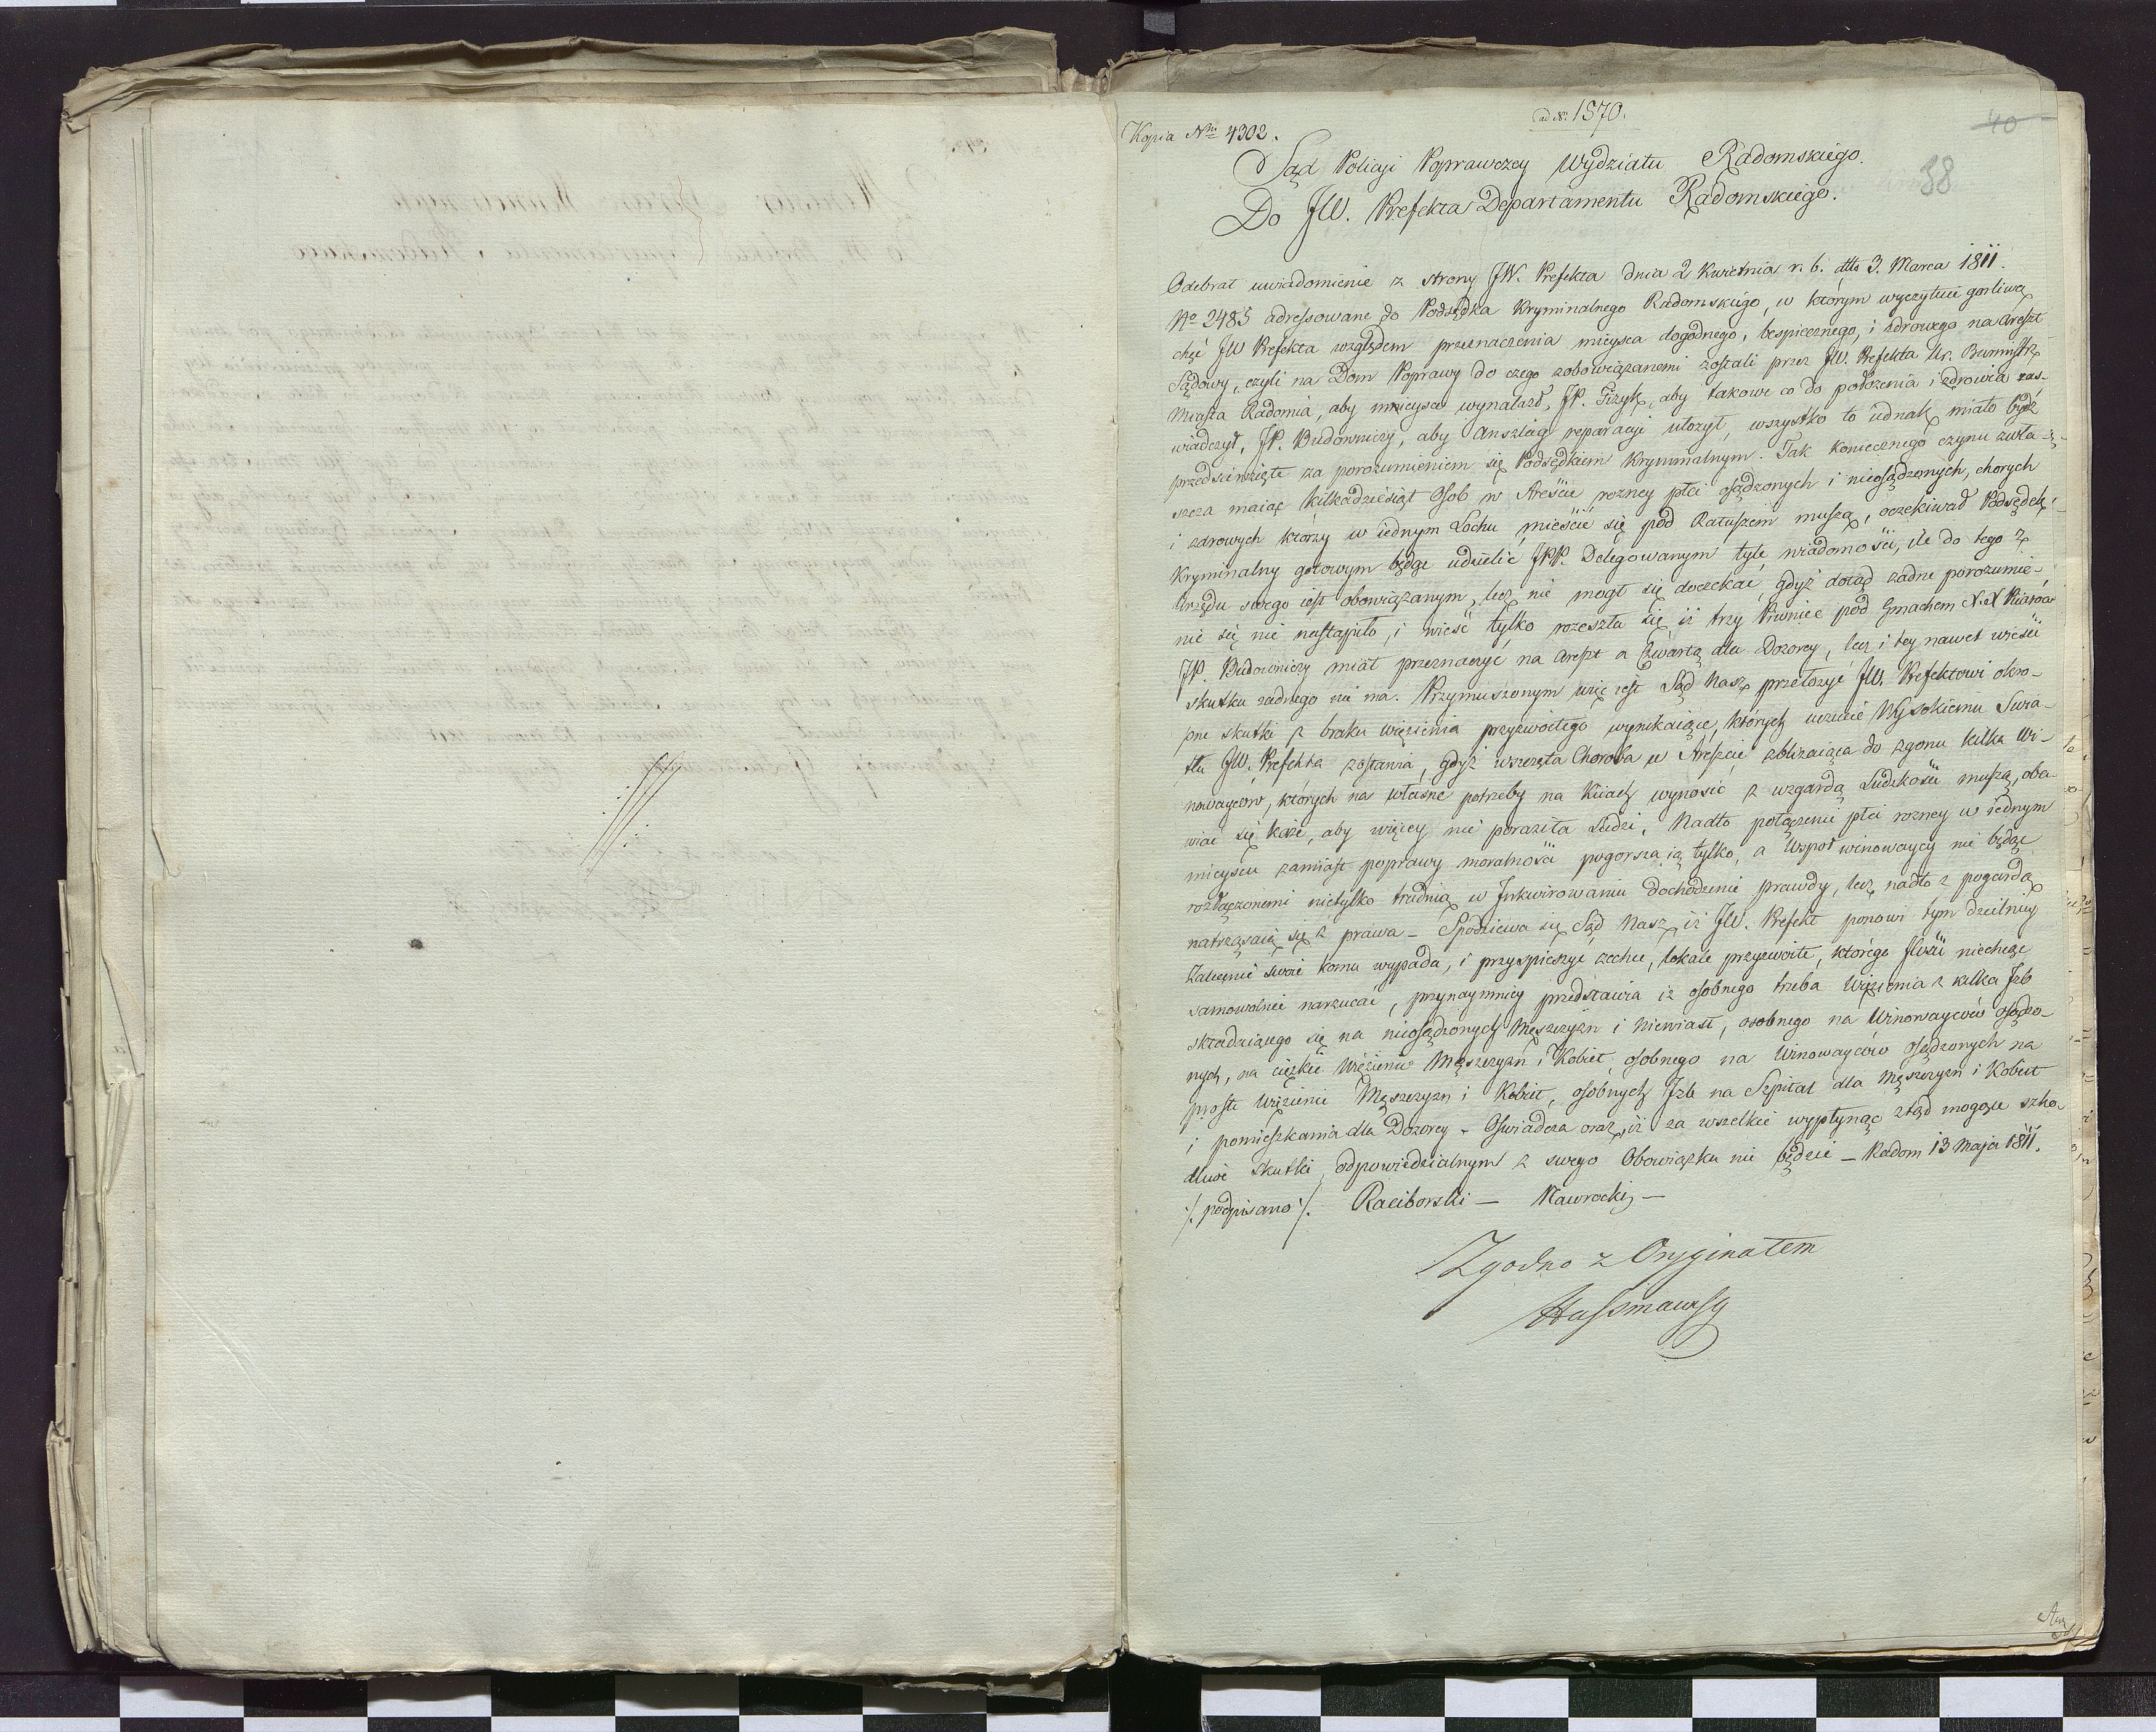 ad N. 1570.
Kopia Nro 4302.
40
38
Sąd Policyi Poprawczey Wydziału Radomskiego.
Do JW. Prefekta Departamentu Radomskiego.
Odebrał uwiadomienie z strony JW. Prefekta dnia 2 Kwietnia r. b. dtto 3. Marca 1811.
No 2485 adressowane do Podsędka Kryminalnego Radomskiego, w którym wyczytuie gorliwą
chęć JW Prefekta względem przeznaczenia mieysca dogodnego, bespiecznego, i zdrowego na Areszt
Sądowy, czyli na Dom Poprawy do czego zobowiązanemi zostali przez JW. Prefekta Ur. Burmistrz
Miasta Radomia, aby mieysce wynalazł, JP. Fizyk, aby takowe co do położenia i zdrowia zas-
wiadczył, JP. Budowniczy, aby Anszlag reparacyi ułożył, wszystko to iednak miało bydź
przedsiewzięte za porozumieniem się Podsędkiem Kryminalnym. Tak koniecznego czynu zwła-
szcza maiąc kilkadziesiąt Osob w Areście rozney płci osądzonych i nieosądzonych, chorych
i zdrowych którzy w iednym Lochu mieścić się pod Ratuszem muszą, oczekiwał Podsędek
Kryminalny gotowym będąc udzielić JPP. Delegowanym tyle wiadomości, ile do tego z
Urzędu swego iest obowiązanym, lecz nie mogł się doczekać, gdyż dotąd żadne porozumie-
nie się nie nastąpiło, i wieść tylko rozeszła się iż trzy Piwnice pod Gmachem X.X. Piiarow
JP. Budowniczy miał przeznaczyć na Areszt a czwartą dla Dozorcy, lecz i tey nawet wieści
skutku żadnego nie ma. Przymuszonym więc iest Sąd Nasz przełożyć JW. Prefektowi okro-
pne skutki z braku więzienia przyzwoitego wynikaiące, których uczucie Wysokiemu Swia-
tłu JW. Prefekta zostawia, gdyż wszczęta Choroba w Areszcie zbliżaiąca do zgonu kilka Wi-
nowayców, których na własne potrzeby na Kiiach wynosić z wzgardą Ludzkości muszą, oba-
wiać się każe, aby więcey nie poraziła Ludzi, Nadto połączenie płci rozney w iednym
mieyscu zamiast poprawy moralności pogorsza ią tylko, a Wspoł winowaycy nie będąc
rozłączonemi nietylko trudnią w Inkwirowaniu dochodzenie prawdy, lecz nadto z pogardą
natrząsaią się z prawa – Spodziewa się Sąd Nasz, iż JW. Prefekt ponowi tym dzielniey
Zalecenie swoie komu wypada, i przyspieszyć zechce, lokale przyzwoite, którego Ilości niechcąc
samowolnie narzucać, przynaymniey przedstawia iż osobnego trzeba Więzienia z kilka Izb
składaiącego się na nieosądzonych Męszczyzn i Niewiast, osobnego na Winowayców osądzo-
nych, na ciężkie Więzienie Męszczyzn i Kobiet, osobnego na Winowayców osądzonych na
proste Więzienie Męszczyzn i Kobiet, osobnych Izb na Szpital dla Męszczyzn i Kobiet
i pomieszkania dla Dozorcy – Oswiadcza oraz, iż za wszelkie wypłynąć ztąd mogące szko-
dliwe skutki, odpowiedzialnym z swego Obowiązku nie będzie – Radom 13 Maja 1811.
/. podpisano ./. Raciborski – Nawrocki –
Zgodno z Oryginałem